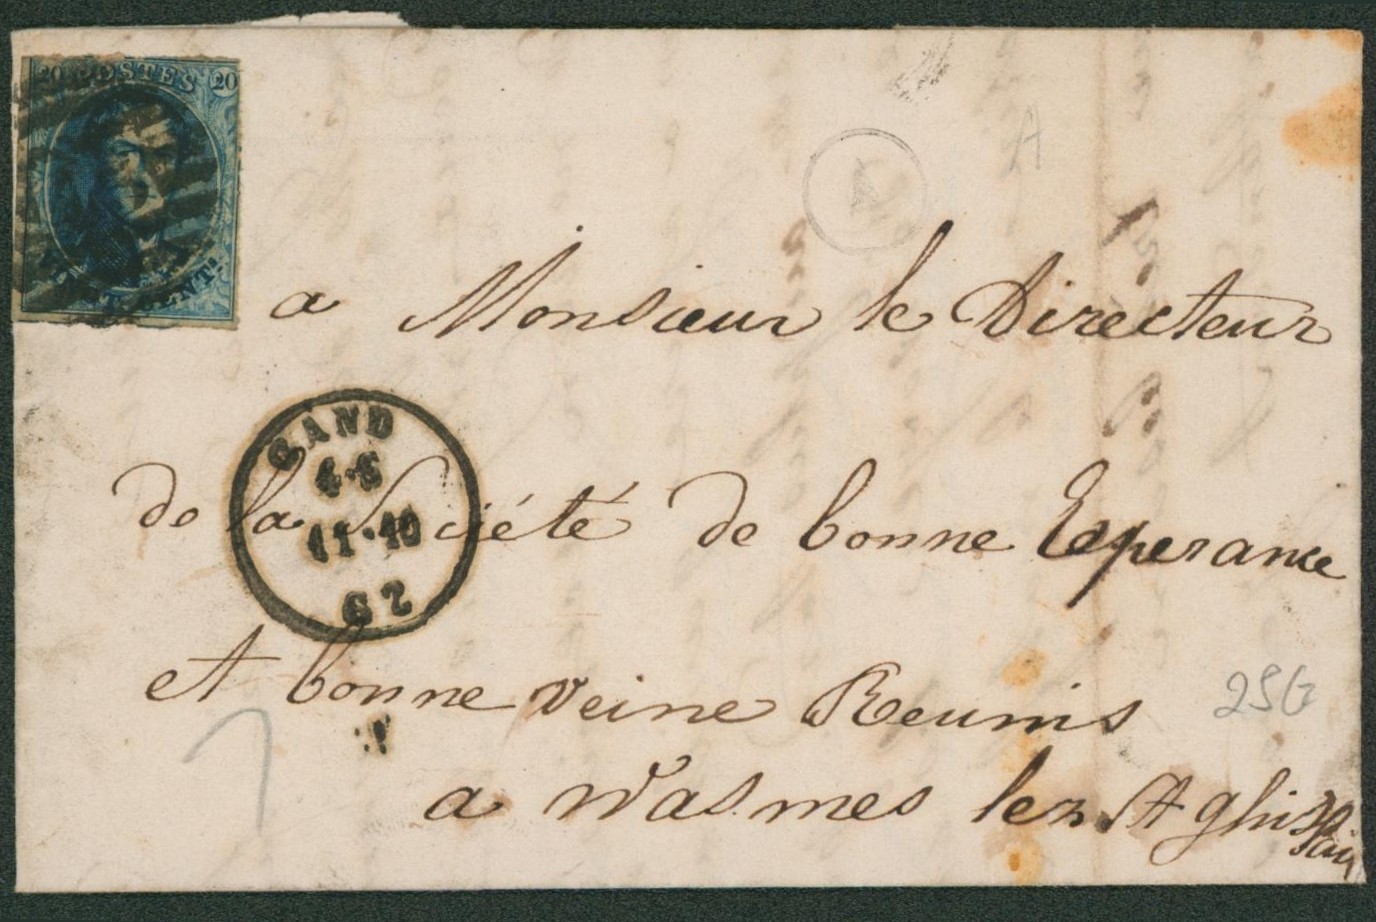 20 POSTES 20
VINGT CENTS
A
A
a Monsieur le Directeur
GAND
4·6
11·10
62
de la Société de bonne Esperance
et bonne veine Reunis
25G
a Wasmes lez St Ghislain